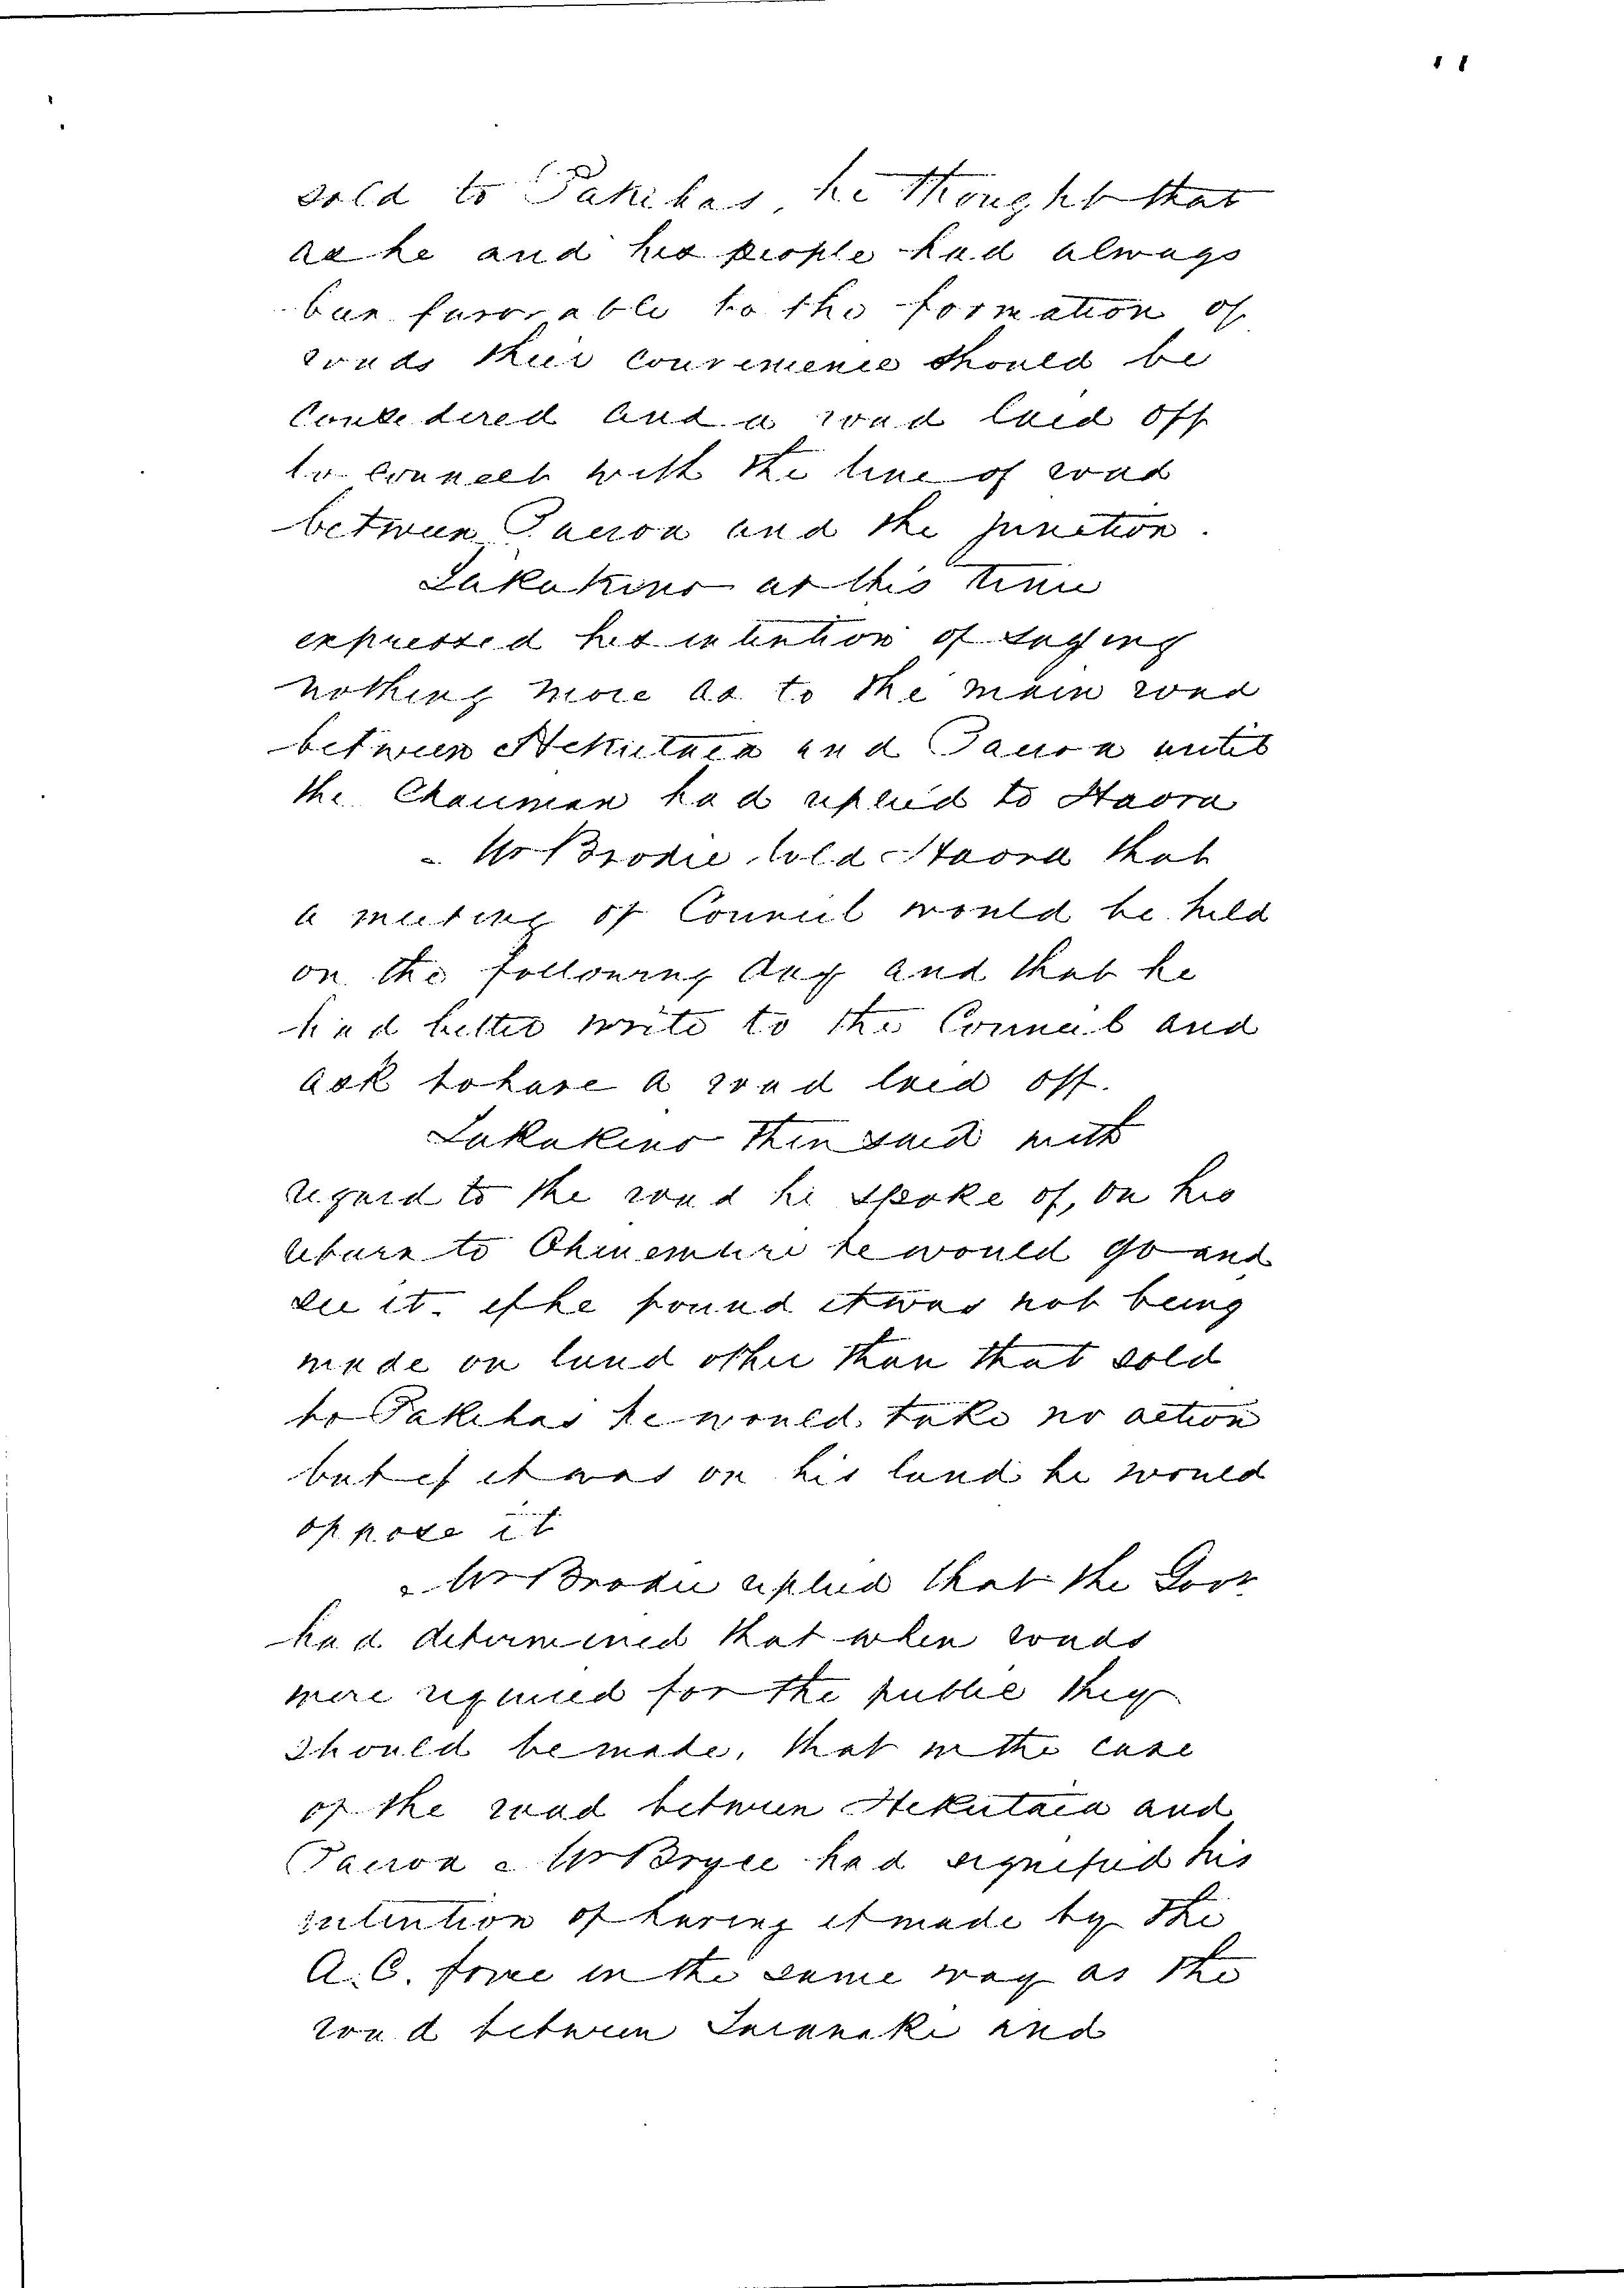 sold to Pakehas, he thought that
as he and his people had always
been favorable to the formation of
roads their convenience should be
considered and a road laid off
to connect with the line of road
between Paeroa and the junction.
Tukukino at this time
expressed his intention of saying
nothing more as to the main road
between Hikutaia and Paeroa until
the Chairman had replied to Haora
Mr Brodie told Haora that
a meeting of Council would be held
on the following day and that he
had better write to the Council and
ask to have a road laid off.
Tukukino then said with
regard to the road he spoke of, on his
return to Ohinemuri he would go and
see it. if he found it was not being
made on land other than that sold
to Pakehas he would take no action
but if it was on his land he would
oppose it
Mr Brodie replied that the Govt
had determined that when roads
were required for the public they
should be made, that in the case
of the road between Hikutaia and
Paeroa Mr Bryce had signified his
intention of having it made by the
A.C. force in the same way as the
road between Taranaki and